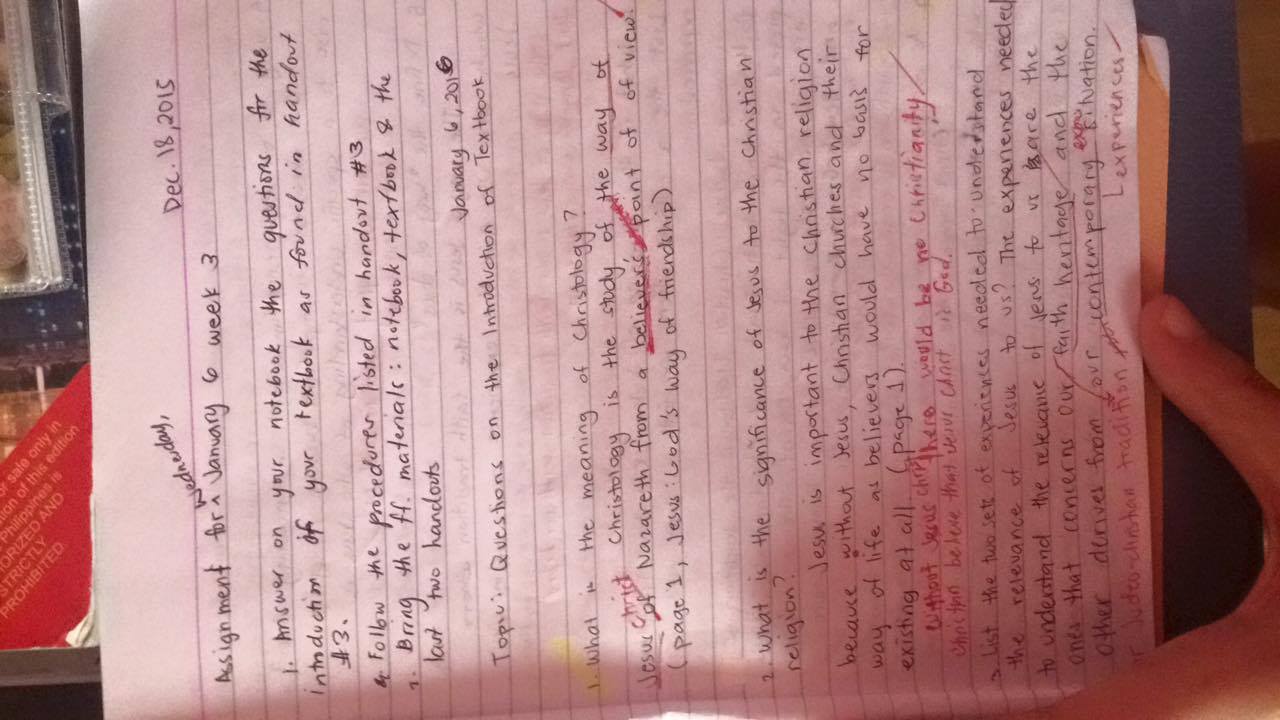 r sale only in
tion of this edition
Philippines is
ORIZED AND
STRICTLY
PROHIBITED
Dec. 18, 2015
Wednesday,
Assignment for ^ January 6 week 3
1. Answer on your notebook the questions for the
introduction of your textbook as found in handout
#3.
Follow the procedures listed in handout #3
2. Bring the ff. materials: notebook, textbook & the
last two handouts
January 6, 2016
Topic: Questions on the Introduction of Textbook
1. What is the meaning of Christology?
Christology is the study, of the way of
Jesus Christ of Nazareth from a believer's point of of view.
(page 1, Jesus: God's way of friendship)
2. What is the significance of Jesus to the Christian
religion?
Jesus is important to the Christian religion
because without Jesus, Christian churches and their
way of life as believers would have no basis for
existing at all. (page 1).
Without Jesus Christ there would be no Christianity
Christian believe that Jesus Christ is God.
3. List the two sets of experiences needed to understand
the relevance of Jesus to us? The experiences needed
to understand the relevance of Jesus to us are the
ones that concerns our faith heritage and the
other derives from our contemporary situation.
or Judeo-christian tradition
experiences